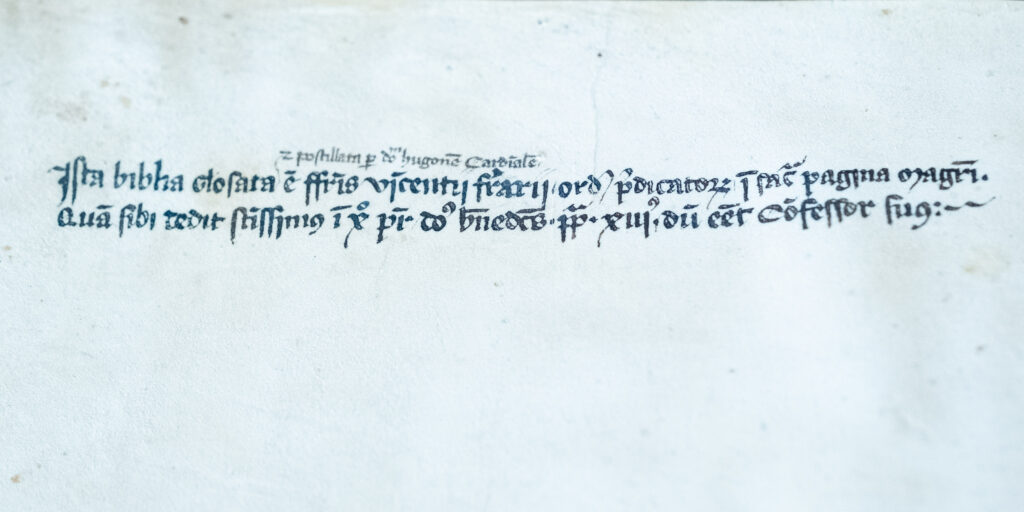 ⁊ postillata ꝑ do᷒ hugonē Cardinalē
Ista biblia glosata ē ffr̄is vīcentij fr̄rarij · ord̓ p̄dicatoꝝ ī sac̄ pagina magr̄i.
Quā sibi dedit sc̄issimꝰ ī xo pr̄ do᷒ bn̄edc̄s · pp̄ · xiij᷒ · dū eēt Cōfessor suꝰ:~